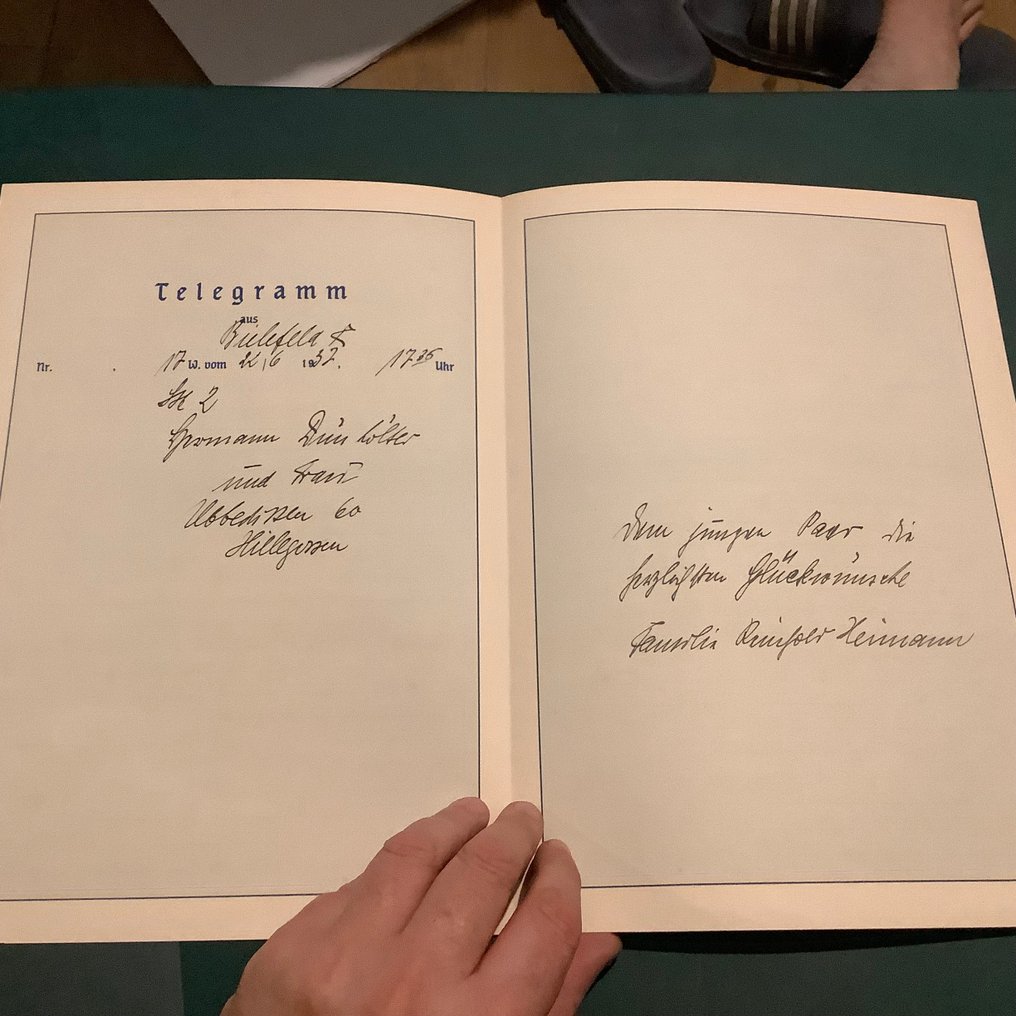 Telegramm
aus
Bielefeld F
Nr. 17 W. vom 22/6 1957. 17 35 Uhr
2
Hermann Dün költer
und Frau
Ubbedissen 60
Hillegossen
Dem jungen Paar die
herzlichsten Glückwünsche
Familie Reinhold Heimann